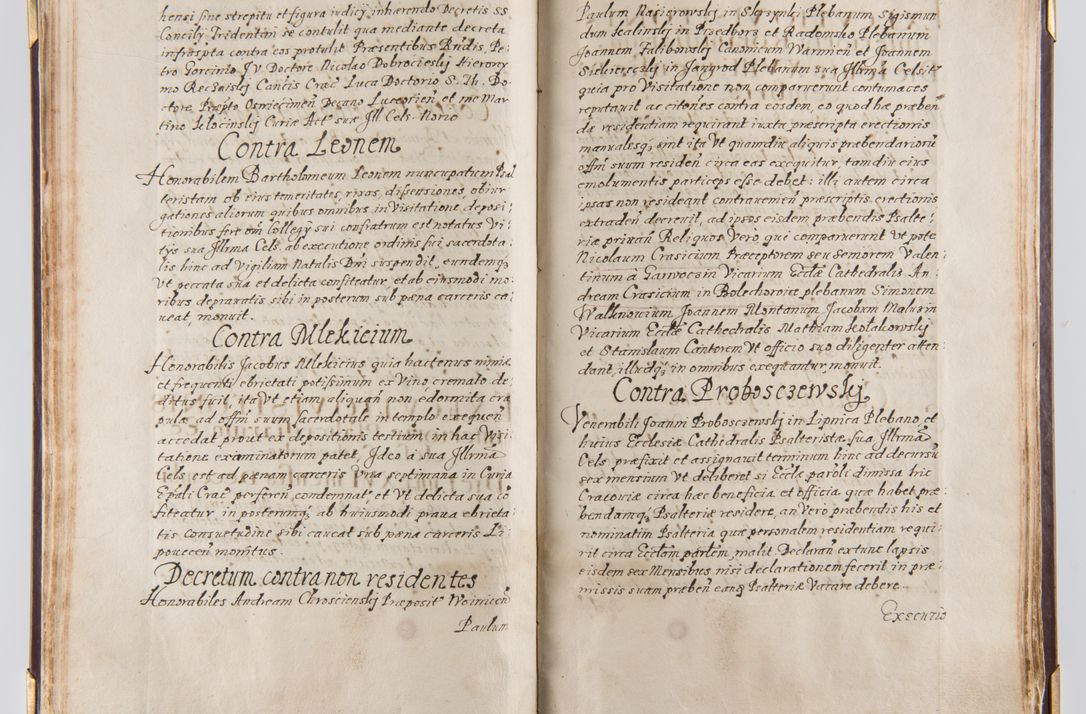 hensi sine strepitu et figura iudicÿ, inhærendo Decretis SS.
Concilÿ Tridentini se contulit qua mediante decreta
infrascpta contra eos protulit Præsentibus Rndis, Pe,
tro Gorcinio J V Doctore Nicolao Dobrocieslij Hierony
mo Canc̃is Crac̃ Luca Doctorio S. Th. Do,
ctore, Præpto Osmiecimeñ Decano Luceorieñ et me Mar
tino Curiæ Act. suæ Jll Cels. Norio
Contra Leonem
Honorabilem Bartholomeum Leonem nuncupatum Psal
teristam ob eius temeritates, rixas, dissensiones obiur,
gationes aliorum quibus omnibus in Visitatione, deposi,
tionibus fere om̃ Collegÿ sui confratrum est notatus Vi,
tÿs sua Jllrma Cels. ab executione ordinis sui sacerdota,
lis hinc ad Vigiliam Natalis Dñi suspendit, eundemq;
Vt peccata sua et delicta confiteatur, et ab eiusmodi mo,
ribus deprauatis sibi in posterum sub pæna carceris ca,
ueat, monuit.
Contra Mlekicium
Honorabilis Jacobus Mlekicius quia hactenus nimiæ
et frequenti ebrietati potissimum ex Vino cremato de,
ditus fuit, ita Vt etiam aliquañ non edormita cra
pula ad offm̃ suum sacerdotale in templo exequeñ
accedat prout ex depositionis testium in hac Visi,
tatione examinatorum patet, Jdeo à sua Jllrma
Cels. est ad pænam carceris Vna septimana in Curia
Epali Crac̃ perfereñ condemnat, et Vt delicta sua cõ
fiteatur in posterumq; ab huiusmodi praua ebrieta,
tis consuetudine sibi caueat sub pæna carceris Li,
poueceñ monitus.
Decretum contra non residentes
Honorabiles Andream Chroscienskij Præposit Woiniceñ
Paulum
Paulum Nasierowskij in Skrzynki Plebanum Sigismun
dum in Przedborz et Radomsko Plebanum
Joannem Falibowskij Canonicum Warmieñ et Joannem
in Jangrod Plebanum sua Jllrma Celsit
quia pro Visitatione non comparuerunt contumaces
reputauit ac citones contra eosdem, eo quod hæ præben
dæ residentiam requirant iuxta præscripta erectionis
manualesq; sint ita Vt quamdiu aliquis præbendarioru
offm̃ suum resideñ circa eas exequitur, tamdiu eius
emolumentis particeps esse debet: illi autem circa
ipsas non resideant contraueniẽ præscriptis erectionis
extradeñ decreuit, ad ipsos eisdem præbendis Psalte,
riæ priuañ Reliquos Vero qui comparuerunt Vt pote
Nicolaum Crasicium Præceptorem seu Semorem Valen
tinum à Garwoczin Vicarium Ecclæ Cathedralis An,
dream Crasicium in Bolechowice plebanum Simonem
Walknowium Joannem Montanum Jacobum
Vicarium Ecclæ Cathedralis Mathiam
et Stanislaum Cantorem Vt officio suo diligenter atten,
dant, illudq; in omnibus exequantur, monuit.
Contra Probosczewskij
Venerabili Joanni Probosczewskij in Lipnica Plebano, et
huius Ecclesiæ Cathedralis Psalteristæ sua Jllrma
Cels præfixit et assignauit terminum hinc ad decursũ
sex mensium Vt deliberet si Ecclæ paroli dimissa hic
Cracouiæ circa hæc beneficia et officia quæ habet præ,
bendamq; Psalteriæ residere, an Vero præbendis his et
nominatim Psalteria quæ personalem residentiam requi,
rit circa Ecclam parlem, malit. Declarañ extunc lapsis
eisdem sex Mensibus nisi declarationem fecerit in præ,
missis suam præbeñ eanq; Psalteriæ Vacare debere.
Executio